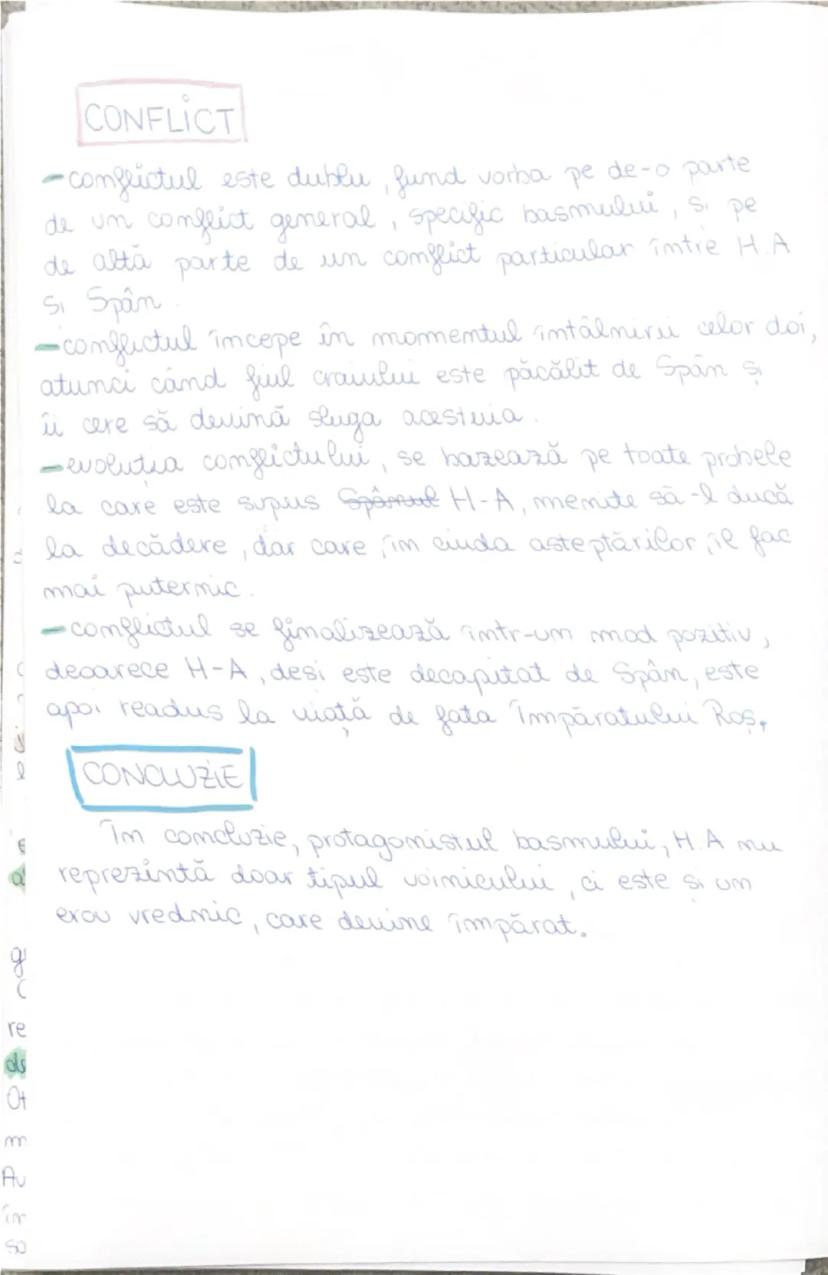 CONFLICT
-conflictul este dublu, fiind vorba pe de-o parte
de un conflict general, specific basmului, si pe
de altă parte de un conflict particular între H.A
si Spân.
-conflictul începe în momentul întâlnirii celor doi,
atunci când fiul craiului este păcălit de Spân și
îi cere să devină sluga acestuia.
-evoluția conflictului, se bazează pe toate probele
la care este supus Spânul H-A, menite să-l ducă
la decădere, dar care, în ciuda asteptărilor, îl fac
mai puternic.
-conflictul se finalizează într-un mod pozitiv,
deoarece H-A, desi este decapitat de Spân, este
apoi readus la viață de fata Împăratului Roș.
CONCLUZIE
În concluzie, protagonistul basmului, H.A nu
reprezintă doar tipul voinicului, ci este si un
erou vrednic, care devine împărat.
re
de
Ot
m
Au
în
so